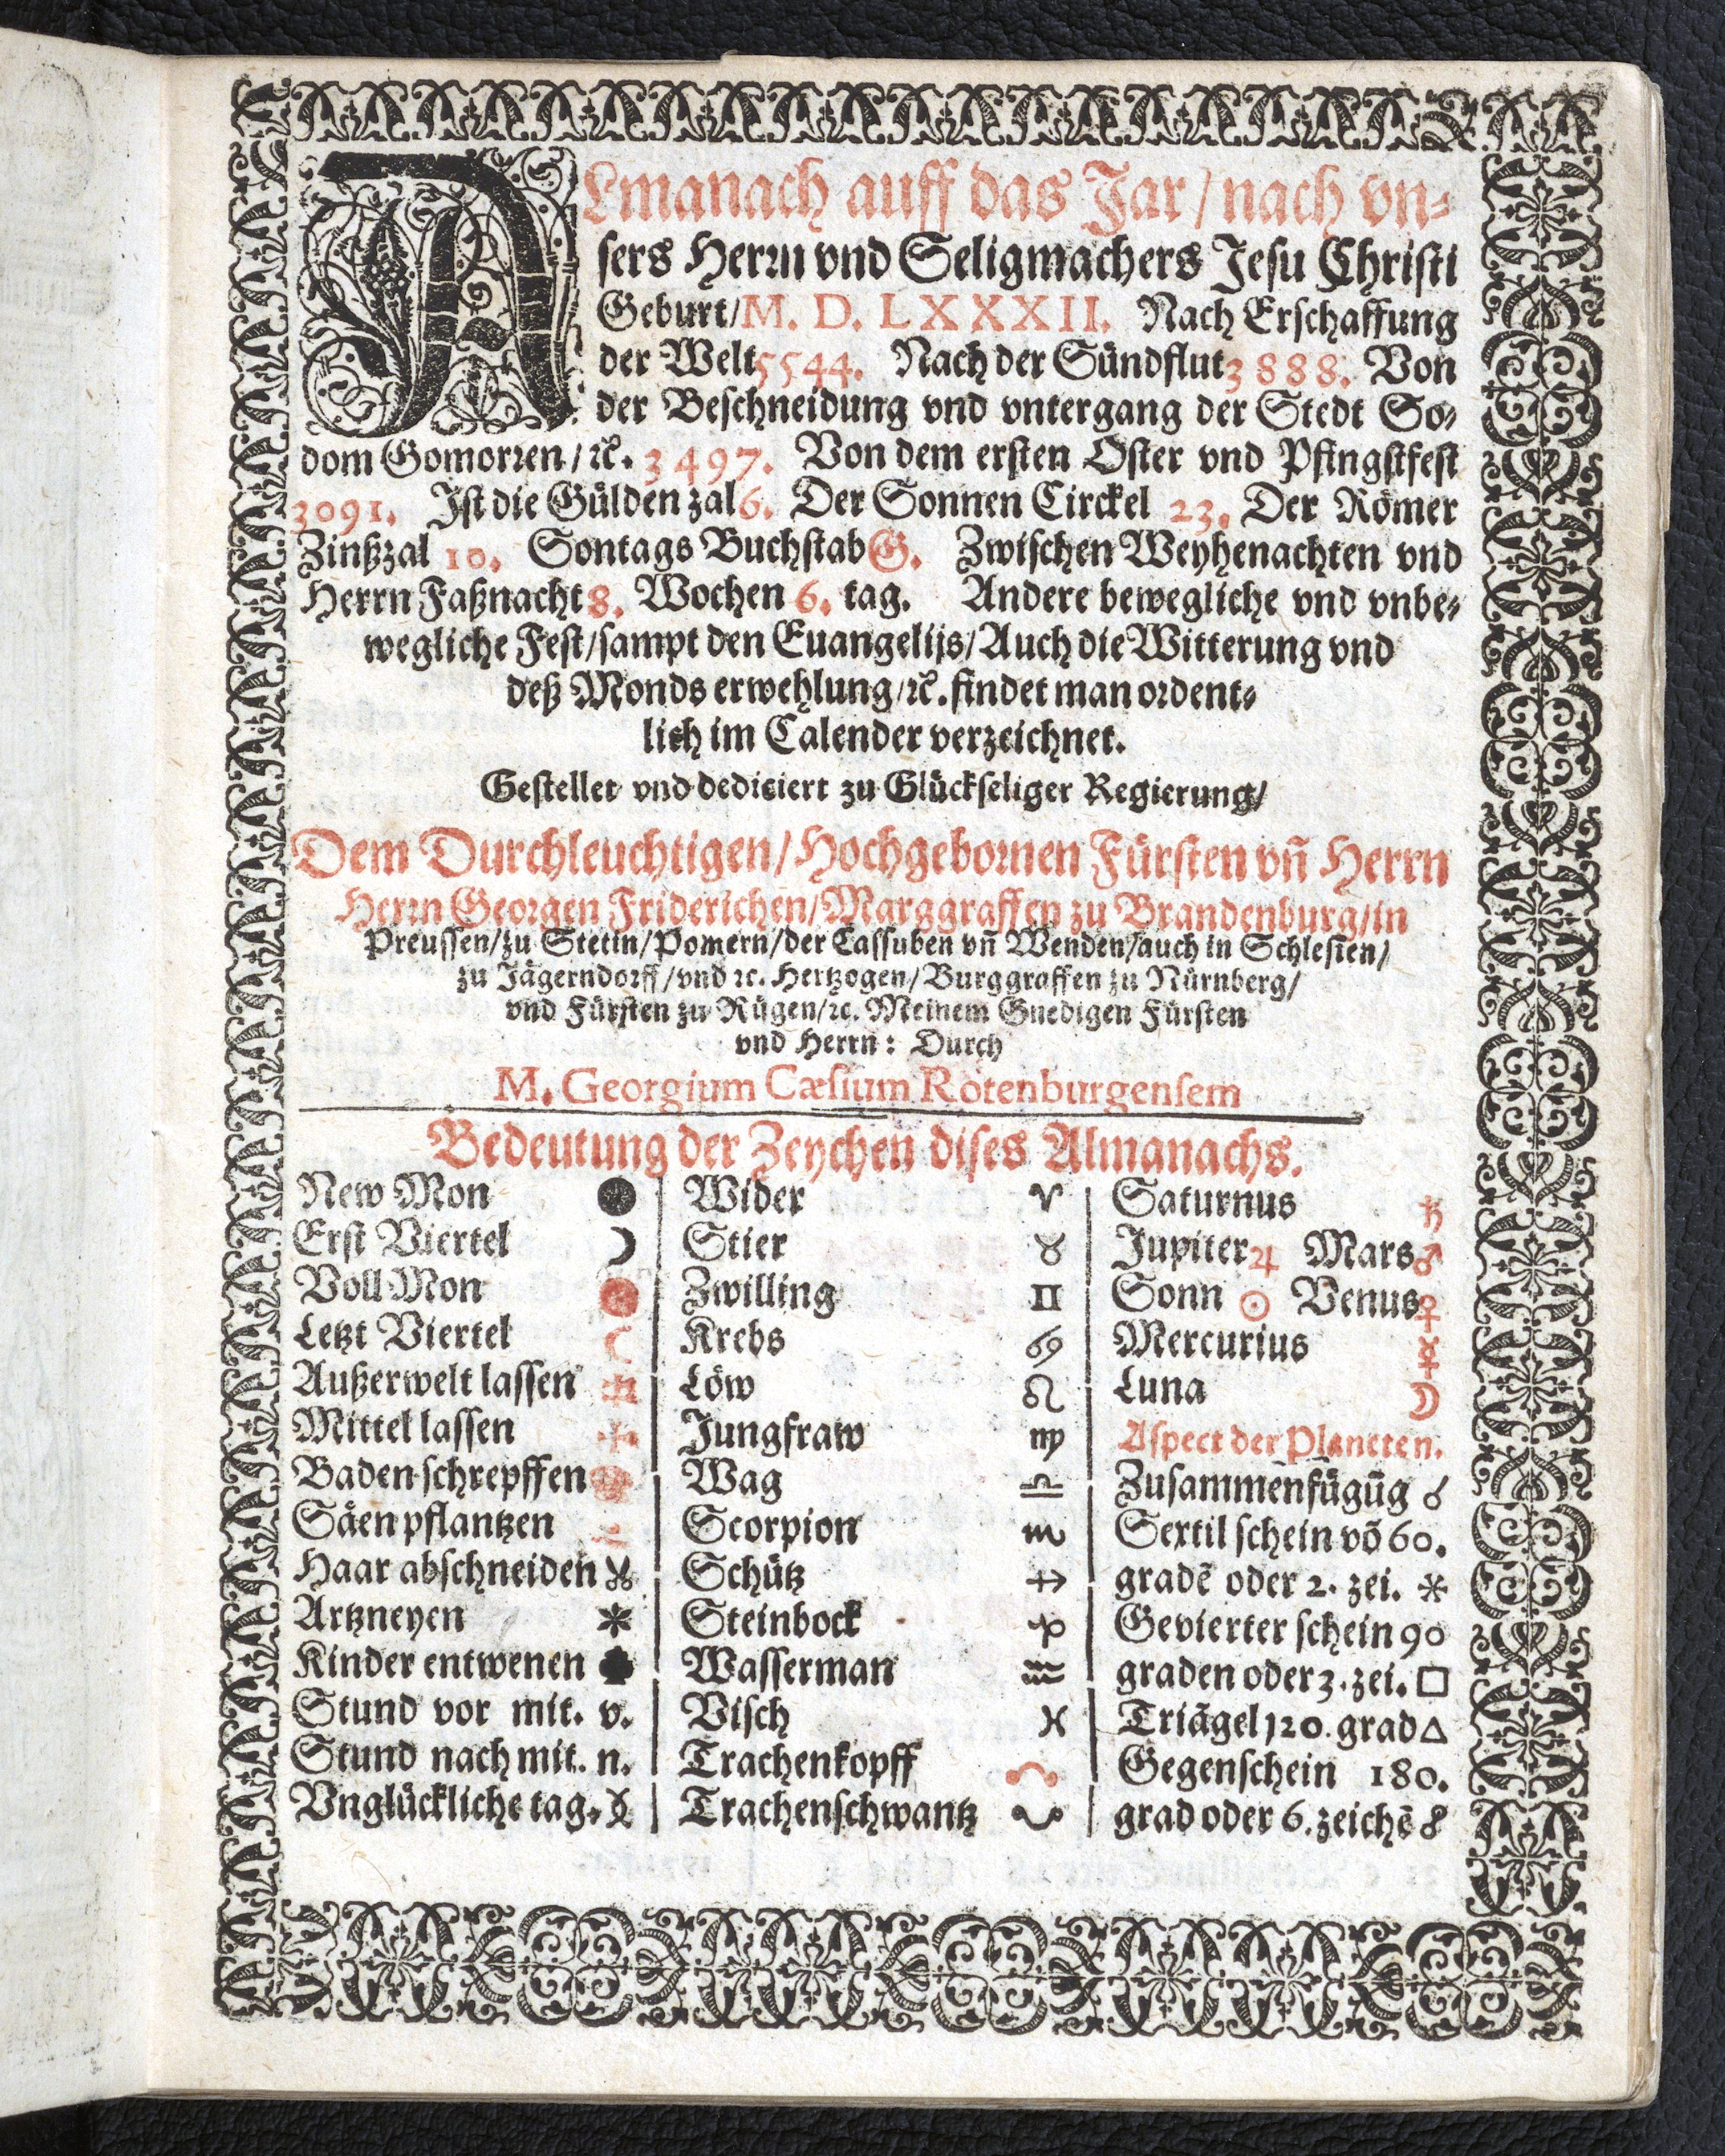 ALmanach auff das Jar / nach vn⸗
sers Herrn vnd Seligmachers Jesu Christi
Geburt / M. D. LXXXII. Nach Erschaffung
der Welt 5544. Nach der Sündflut 3888. Von
der Beschneidung vnd vntergang der Stedt So⸗
dom Gomorren / ꝛc. 3497. Von dem ersten Oster vnd Pfingstfest
3091. Ist die Gülden zal 6. Der Sonnen Circkel 23. Der Römer
Zinßzal 10. Sontags Buchstab G. Zwischen Weyhenachten vnd
Herrn Faßnacht 8. Wochen 6. tag. Andere bewegliche vnd vnbe⸗
wegliche Fest / sampt den Euangelijs / Auch die Witterung vnd
deß Monds erwehlung / ꝛc. findet man ordent⸗
lich im Calender verzeichnet.
Gestellet vnd dediciert zu Glückseliger Regierung /
Dem Durchleuchtigen / Hochgebornen Fürsten vñ Herrn
Herrn Georgen Friderichen / Marggraffen zu Brandenburg / in
Preussen / zu Stetin / Pomern / der Cassuben vñ Wenden / auch in Schlesien /
zu Jägerndorff / vnd ꝛc. Hertzogen / Burggraffen zu Nürnberg /
vnd Fürsten zu Rügen / ꝛc. Meinem Gnedigen Fürsten
vnd Herrn : Durch
M. Georgium Cæsium Rotenburgensem
Bedeutung der Zeychen dises Almanachs.
New Mon ●
Erst Viertel ☽
Voll Mon
Letzt Viertel ☾
Außerwelt lassen
Mittel lassen
Baden schrepffen
Säen pflantzen
Haar abschneiden
Artzneyen *
Kinder entwenen
Stund vor mit. v.
Stund nach mit. n.
Vnglückliche tag.
Wider ♈
Stier ♉
Zwilling ♊
Krebs ♋
Löw ♌
Jungfraw ♍
Wag ♎
Scorpion ♏
Schütz ♐
Steinbock ♑
Wasserman ♒
Visch ♓
Trachenkopff ☊
Trachenschwantz ☋
Saturnus ♄
Jupiter ♃ Mars ♂
Sonn ☉ Venus ♀
Mercurius ☿
Luna ☽
Aspect der Planeten.
Zusammēfügūg ☌
Sextil schein võ 60.
gradē oder 2. zei. ⚹
Gevierter schein 90
graden oder 3. zei. □
Triāgel 120. grad △
Gegenschein 180.
grad oder 6. zeichē ☍